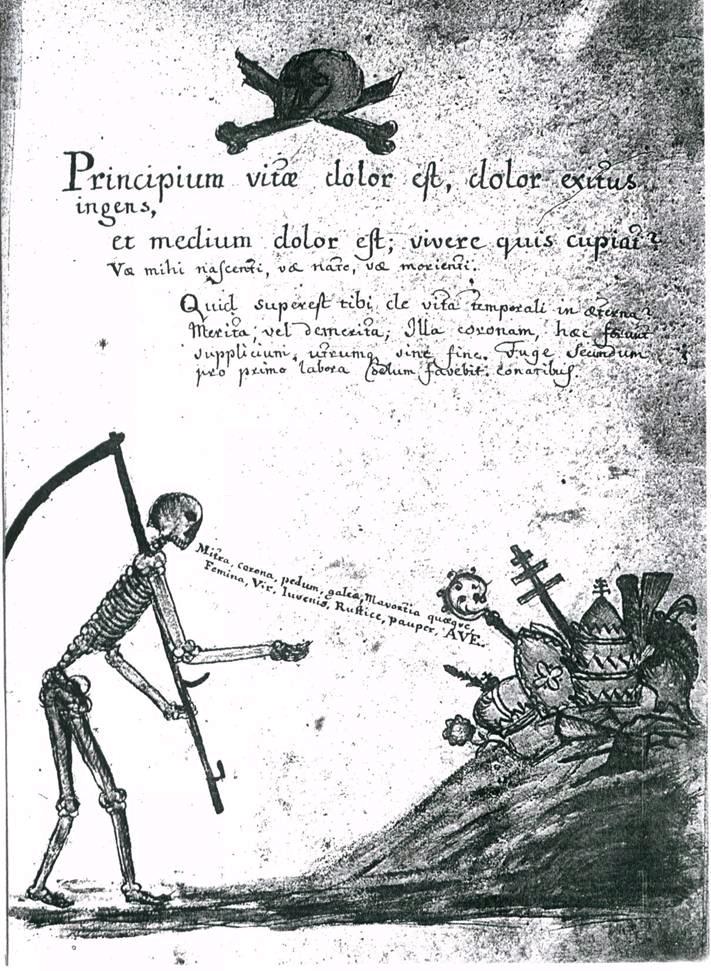 Principium vitæ dolor est, dolor exitus
ingens,
et medium dolor est; vivere quis cupiat?
Væ mihi nascenti, væ nato, væ morienti.
Quid superest tibi de vita temporali in æterna?
Merita, vel demerita; Illa coronam, hæc
supplicium, utrumq sine fine. Fuge secundum
pro primo labora Cœlum favebit conatibus.
Mitra, corona, pedum, galea, Mavortia quæque,
Femina, Vir, Iuvenis, Rustice, pauper, AVE.